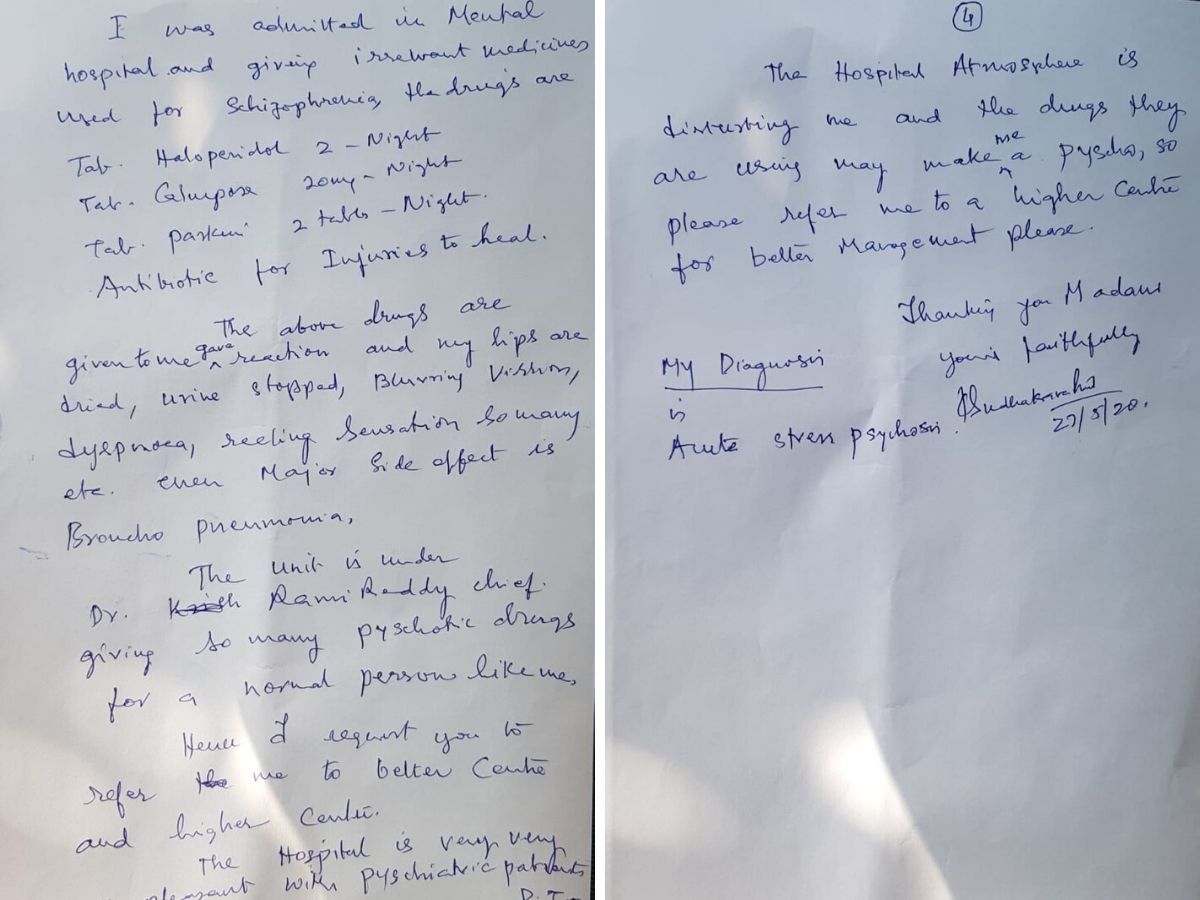 I was admitted in Mental
hospital and giving irrelevant medicines
used for Schizophrenia, the drugs are
Tab. Haloperidol 2 – Night
Tab. 20mg – Night
Tab. 2 tabs – Night.
Antibiotic for Injuries to heal.
The above drugs are
given to me gave reaction and my lips are
dried, urine stopped, Blurring Vission,
dyspnoea, reeling sensation so many
etc. even Major Side effect is
Broncho pneumonia,
The unit is under
Dr. Rami Reddy chief.
giving so many pyschotic drugs
for a normal person like me,
Hence I request you to
refer me to better Centre
and higher Centre.
The Hospital is very very
with pyschiatric patients
P.T
4
The Hospital Atmosphere is
disturbing me and the drugs they
are using may make me a pyscho, so
please refer me to a higher Centre
for better Management please.
Thanking you Madam
yours faithfully
My Diagnosis
is
Sudhakar
27/5/20.
Acute stress psychosis.